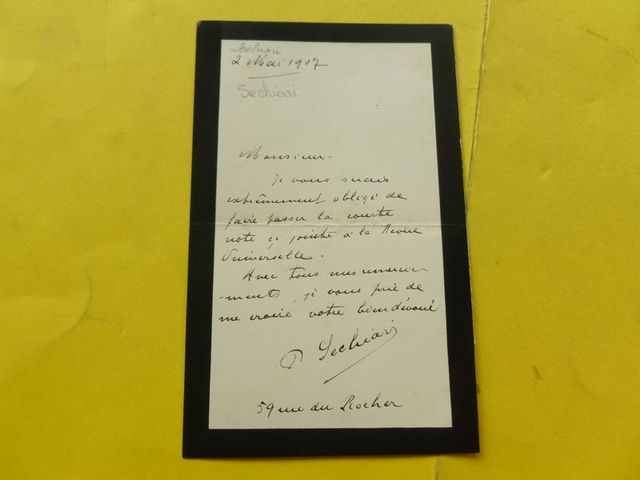 2 Mai 1907
Sechiari
Monsieur.
Je vous serais
extrêmement obligé de
faire passer la courte
note ci jointe à la Revue
Universelle.
Avec tous mes remercie
-ments, je vous prie de
me croire votre bien dévoué
P. Sechiari
59 rue du Rocher